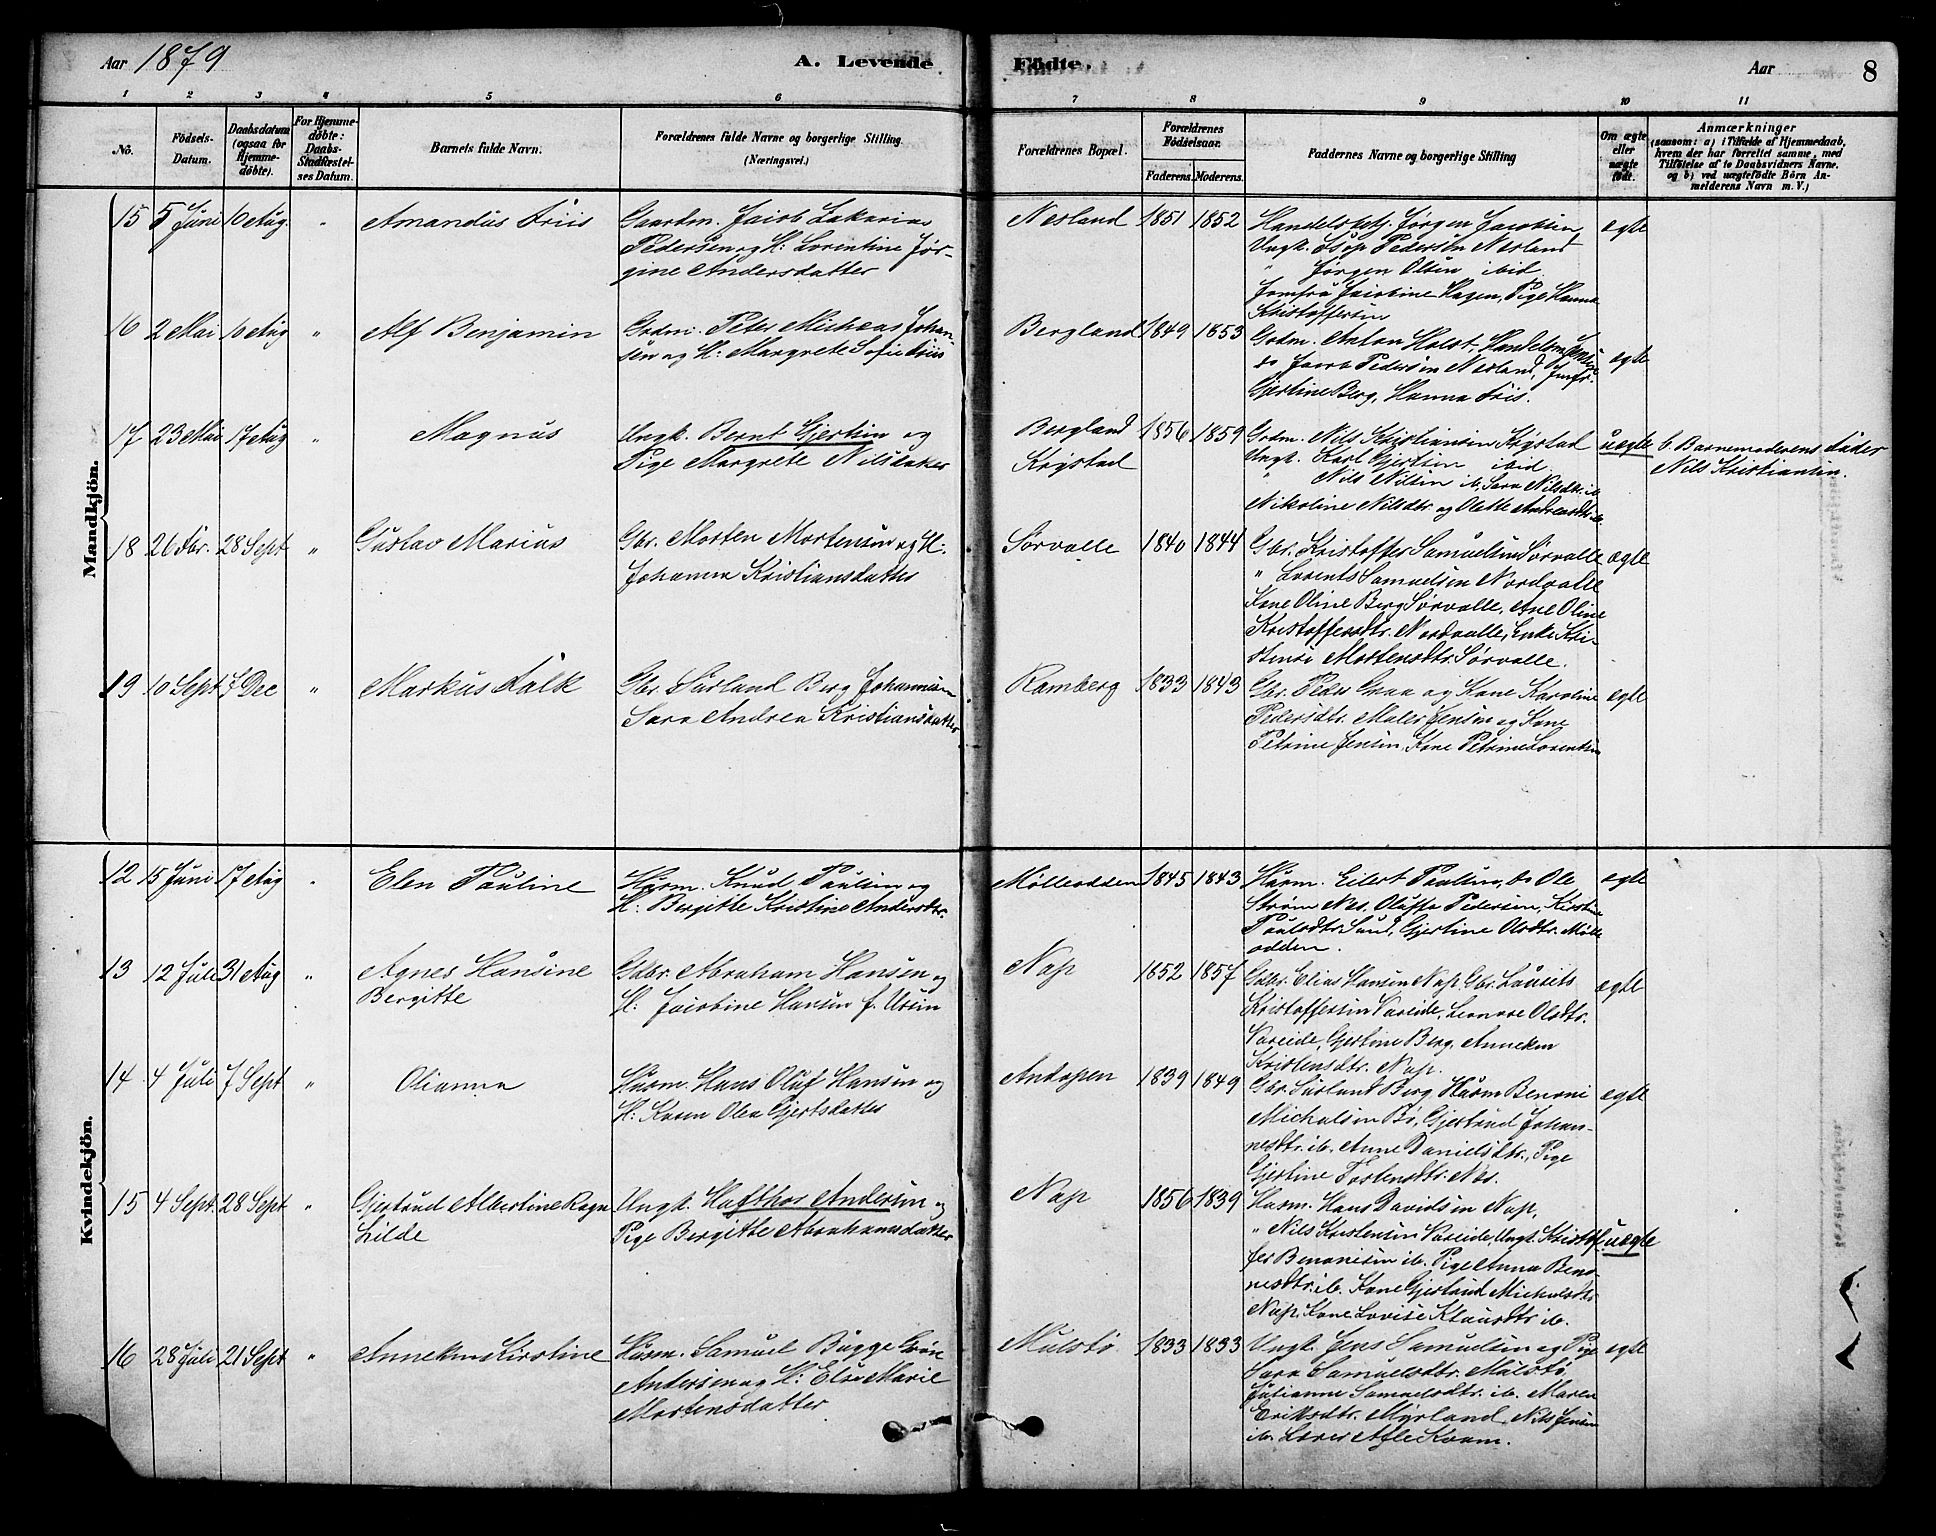 Aar 1879
A. Levende
Födte.
Aar
8
1 2 3 4 5 6 7 8 9 10 11
No.
Födsels-
Datum.
Daabsdatum
(ogsaa for
Hjemme-
döbte).
For Hjemme-
döbte:
Daabs-
Stadfæstel-
ses Datum.
Barnets fulde Navn.
Forældrenes fulde Navne og borgerlige Stilling
(Næringsvei.)
Forældrenes Bopæl.
Forældrenes
Födselsaar.
Faderens. Moderens.
Faddernes Navne og borgerlige Stilling
Om ægte
eller
uægte
födt.
Anmærkninger
(saasom: a) i Tilfælde af Hjemmedaab,
hvem der har forrettet samme, med
Tilföielse af to Daabsvidners Navne.
og b) ved uægtefödte Börn An-
melderens Navn m. V.)
Mandkjön.
15 5 Juni 10 Aug. " Amandus Friis
Gaardm. Jacob Zakarias
Pedersen og H: Lorentine Jør-
gine Andersdatter
Nesland 1851 1852
Jørgen Jacobsen
Ungk. Pedersen Nesland
" Jørgen Olsen ibid
Jomfru Jacobine Hagen, Pige Hanna
Kristoffersen
ægte
16 2 Mai 10 Aug " Alf Benjamin
Grdm. Peder Micheas Johan-
sen og H: Margrete Sofie Friis
Bergland 1849 1853
Grdm. Anton Holst, Handelsm. Jensen
do Jacob Pedersen Nesland, Jomfr.
Gjertine Berg, Hanna Friis.
ægte
17 23 Mai 17 Aug " Magnus
Ungk. Bernt Gjertsen og
Pige Margrete Nilsdatter
Bergland
Krystad
1856 1859
Grdm. Nils Kristiansen Krystad
Ungk. Karl Gjertsen ibid
" Nils Nilsen ib, Sara Nilsdtr. ib
Nikoline Nilsdtr og Olette Andreasdtr. ib.
uægte
b. Barnemoderens Fader
Nils Kristiansen.
18 26 Febr. 28 Sept " Gustav Marius
Gbr. Morten Mortensen og H:
Johanna Kristiansdatter
Sørvalle 1840 1844
Gbr. Kristoffer Samuelsen Sørvalle
" Lorents Samuelsen Nordvalle
Kone Oline Berg Sørvalle, Ane Oline
Kristoffersdtr. Nordvalle, Enke Kri-
stense Mortensdtr. Sørvalle.
ægte
19 10 Sept 7 Dec " Markus Falk
Gbr. Surland Berg Johannesen
Sara Andrea Kristiansdatter
Ramberg 1833 1843
Gbr. Peder Graa og Kone Karoline
Pedersdtr. Maler Jensen og Kone
Petrine Jensen, Kone Petrine Lorentsen
ægte
Kvindekjön.
12 15 Juni 17 Aug " Elen Pauline
Husm. Knud Paulsen og
H: Bergitte Kristine Andersdtr.
Mølleodden 1845 1843
Husm. Eilert Paulsen, do Ole
Strøm Nes, Olufia Pedersen, Kirstine
Paulsdtr. Sund, Gjertine Olsdtr. Mølle
odden.
ægte
13 12 Juli 31 Aug " Agnes Hansine
Bergitte
Gdbr. Abraham Hansen og
H: Jacobine Hansen f. Ursin
Nap 1852 1857
Gdbr. Elias Hansen Nap, Gbr. Laurits
Kristoffersen Vareide, Leonore Olsdtr.
Vareide, Gjertine Berg, Anneken
Kristensdtr. Nap.
ægte
14 4 Juli 7 Sept " Olianna
Husm. Hans Oluf Hansen og
H: Karen Olea Gjertsdatter
Andopen 1839 1849
Gbr. Surland Berg, Husm Benoni
Michalsen Bø, Gjertrud Johan-
nesdtr. ib. Anne Danielsdtr., Pige
Gjertine Torstensdtr. Nes.
ægte
15 4 Sept. 28 Sept " Gjertrud Albertine Ragn
Hilde
Ungk. Hafthor Andersen og
Pige Bergitte Abrahamsdatter
Nap 1856 1839
Husm. Hans Davidsen Nap,
" Nils Kristensen Vareide, Ungk. Kristof-
fer Benonisen ib. Pige Anna Beno-
nesdtr. ib. Kone Gjertrud Michalsdtr
Nap, Kone Lovise Klausdtr ib.
uægte
16 28 Juli 21 Sept " Anneken Kirstine
Husm. Samuel Bugge Grøn
Andersen og H: Else Marie
Mortensdatter
Mulstø 1833 1833
Ungk. Jens Samuelsen og Pige
Sara Samuelsdtr. Mulstø
Julianne Samuelsdtr. ib. Maren
Eriksdtr. Myrland, Nils Jensen
ib. Lærer Kvam.
ægte